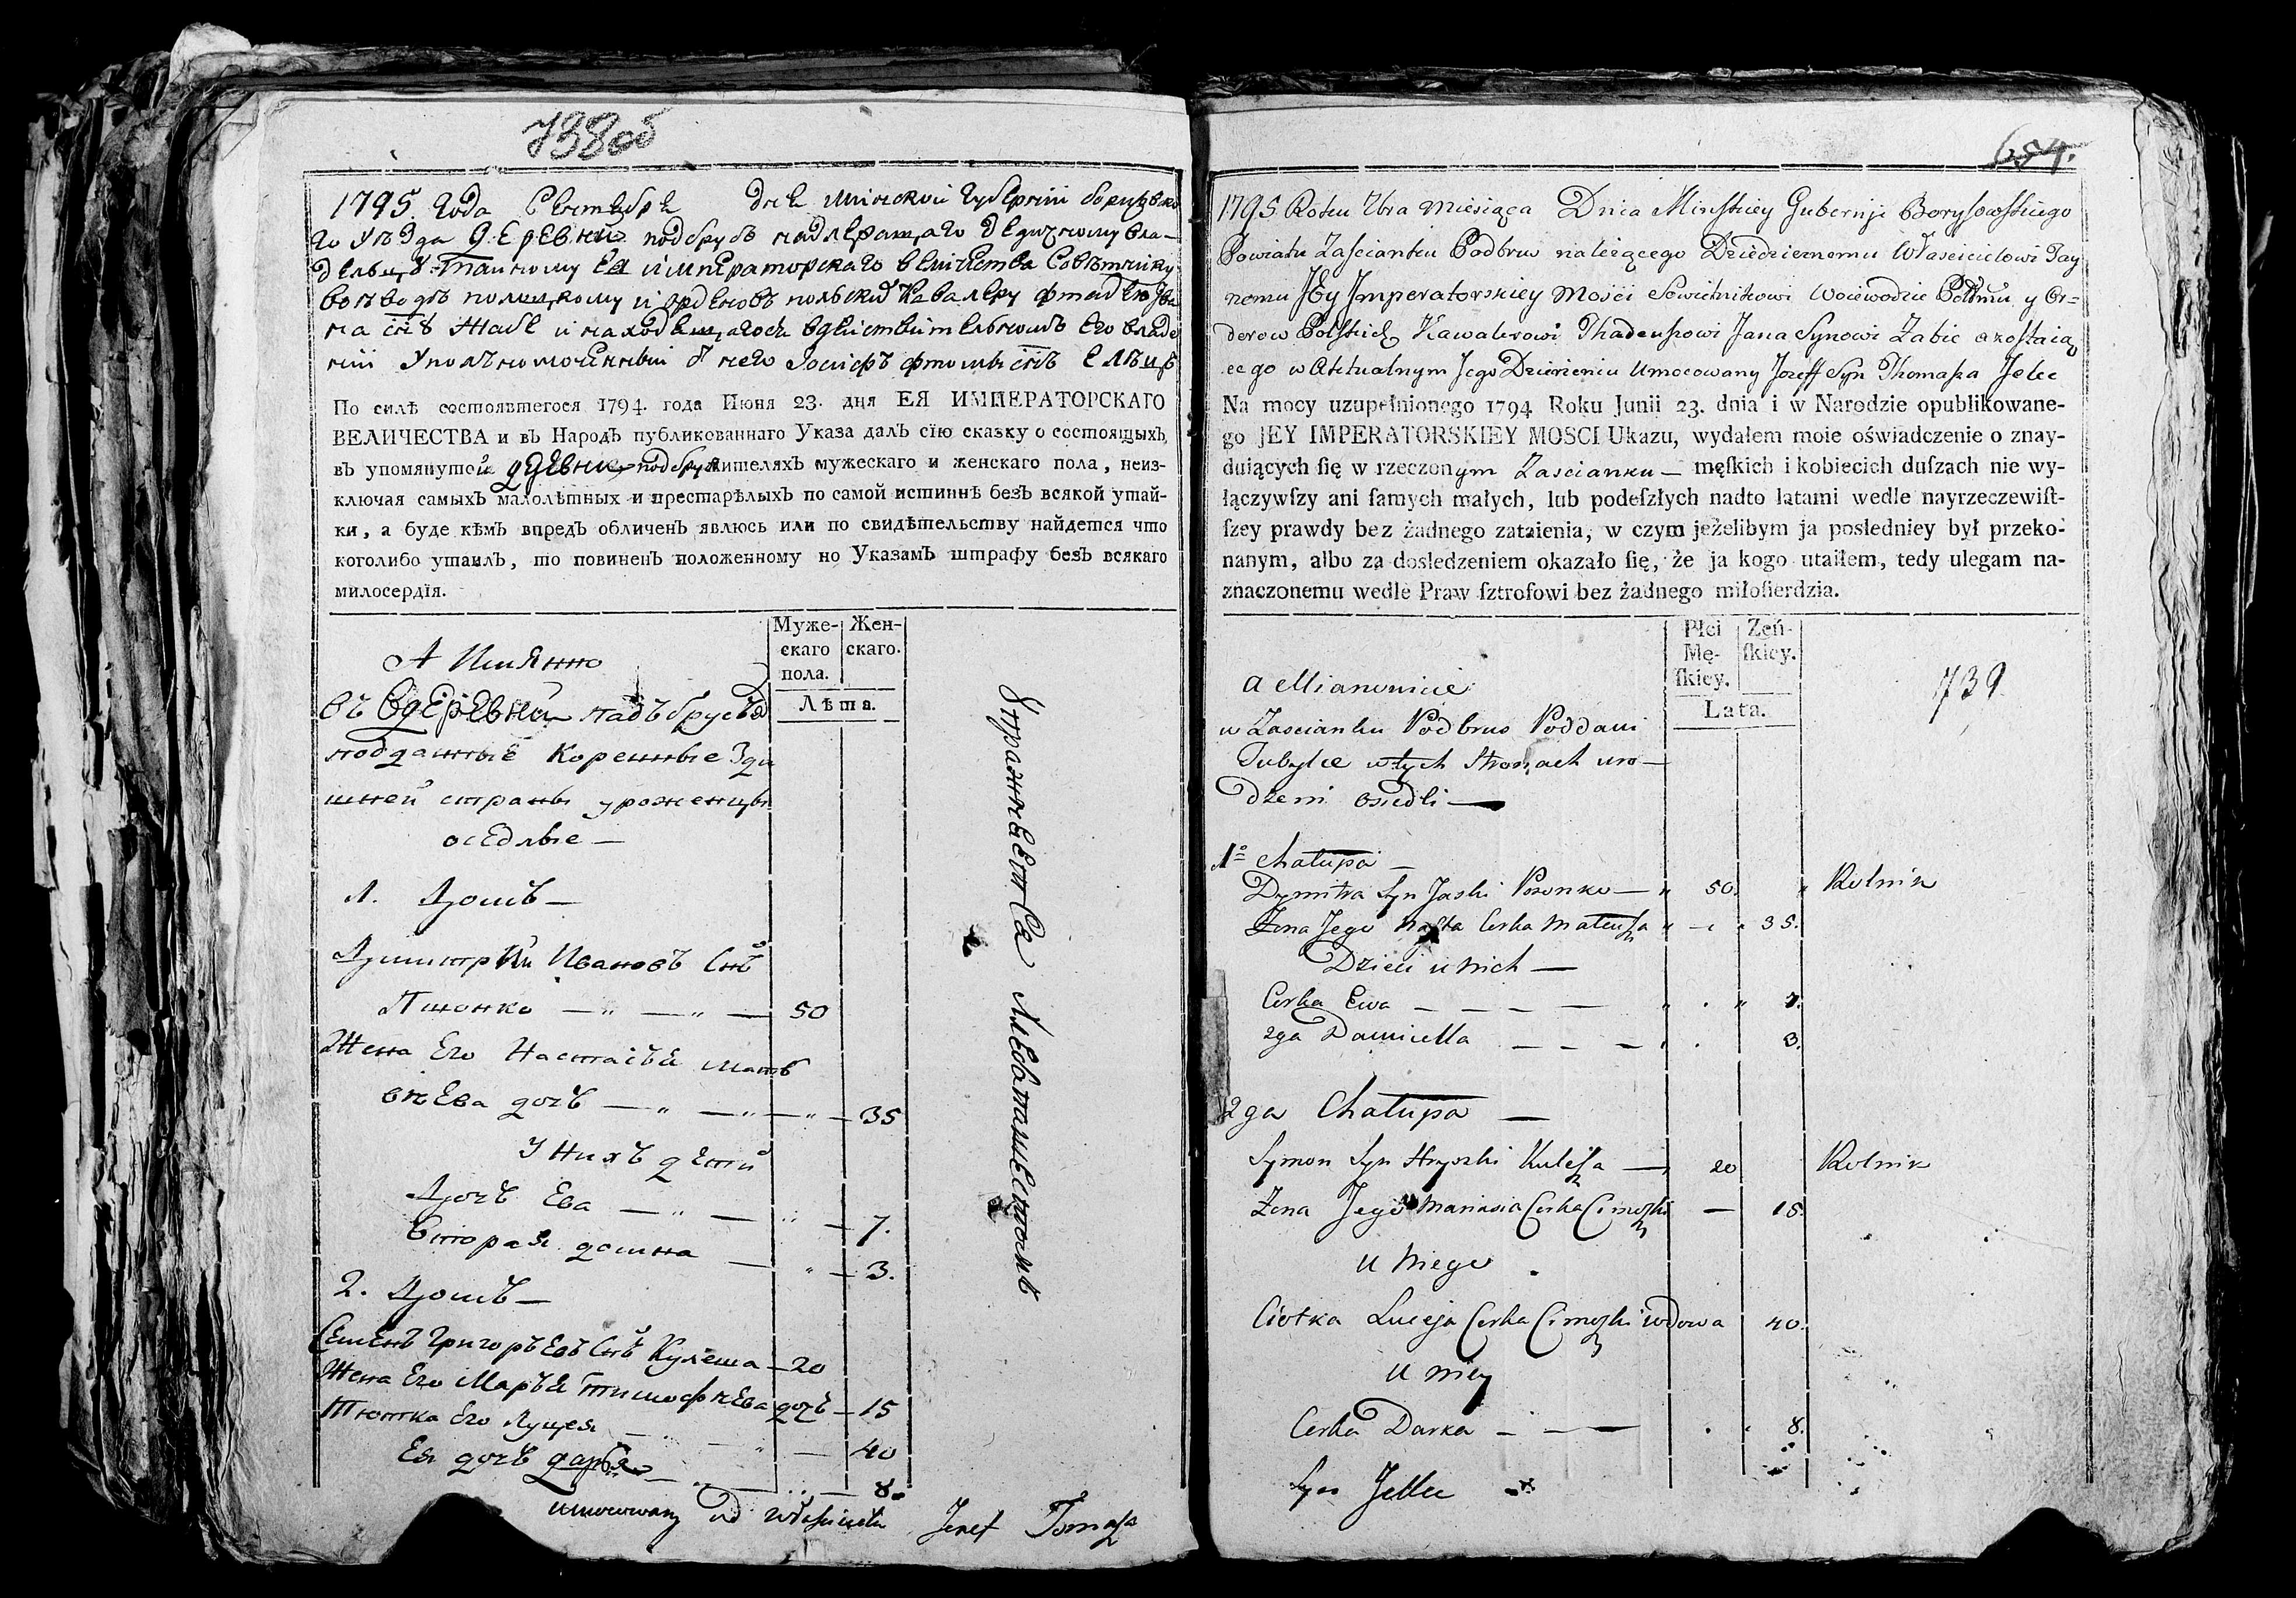 738об
1795 года Сентебре дне Минской губернии борисовско
го уезда Деревни подбрусъ надлежащаго дедичному вла-
дельцу тайному Ея императорскаго величества Советнику
воеводе полоцкому и орденовъ польский Кавалеру фтадею Ива
на снъ Жабе и находещагося вдействителномъ его владе
нии уполномоченный от него Иосифъ фтомы снъ Елецъ
По силѣ состоявшегося 1794. года Июня 23. дня ЕЯ ИМПЕРАТОРСКАГО
ВЕЛИЧЕСТВА и въ Народъ публикованнаго Указа далъ сію сказку о состоящыхъ
въ упомянутой деревне подбруси жителяхъ мужескаго и женскаго пола, неиз-
ключая самыхъ малолѣтныхъ и престарѣлыхъ по самой истиннѣ безъ всякой утай-
ки, а буде кѣмъ впредъ обличенъ явлюсь или по свидѣтельству найдется что
коголибо утаилъ, то повиненъ положенному по Указамъ штрафу безъ всякаго
милосердія.
Муже-
скаго
пола.
Жен-
скаго.
Лѣта.
А Имянно
въ вдеревни падъбрусъ
подданные коренные зди
шней страны уроженцы
оседлые —
1. Домъ —
Димитрий Ивановъ Снъ
Пшонко — 50
Жена Его Настасъя матъ
вѣева дочъ — 35
У нихъ дети
Дочъ Ева — 7.
Вторая домна — 3.
2. Домъ —
Семенъ Григоръевъ Снъ Кулеша — 20
Жена Его Маръя тимофѣева дочъ — 15
Тютка Его Луцея — 40
Ея дочъ даръя — 8.
Упражняется Хлебопашеством
umocowany od Właściciela Jozef Tomasza
654.
1795 Roku 7bra Miesiąca Dnia Minskiey Gubernji Borysowskiego
Powiatu Zascianku Podbrus nalezącego Dziedzicznemu Włascicielowi Tay
nemu JEy Jmperatorskiey Mosci Sowietnikowi Woiewodzie Połtmu y Or=
derow Polskich Kawalerowi Thadeuszowi Jana Synowi Zabie a zostaią
cego w Aktualnym Jego Dzierżeniu Umocowany Jozeff Syn Thomasza Jelec
Na mocy uzupełnionego 1794 Roku Junii 23. dnia i w Narodzie opublikowane-
go JEY IMPERATORSKIEY MOSCI Ukazu, wydałem moie oświadczenie o znay-
duiących ſię w rzeczonym Zascianku — męſkich i kobiecich duſzach nie wy-
łączywſzy ani ſamych małych, lub podeſzłych nadto latami wedle nayrzeczewiſt-
ſzey prawdy bez żadnego zataienia, w czym jeżelibym ja posledniey był przeko-
nanym, albo za dosledzeniem okazało ſię, że ja kogo utaiłem, tedy ulegam na-
znaczonemu wedle Praw ſztrofowi bez żadnego miłoſierdzia.
Płci
Mę-
ſkiey.
Zeń-
ſkiey.
Lata.
739
a Mianowicie
w Zascianku Podbrus Poddani
Tubylce w tych Stronach uro—
dzeni osiedli —
1º Chałupa —
Dymitra Syn Jaski Pszonko — 50. Rolnik
Zona Jego Nasta Corka Mateusza 35.
Dzieci u nich —
Corka Ewa — 7.
2ga Daumiella — 3.
2ga Chałupa —
Symon Syn Hryszki Kulesza — 20 Rolnik
Zona Jego Marusia Corka Cimoszki — 15.
U Niego
Ciotka Luceja Corka Cimoszki wdowa 40.
U niey
Corka Darka — 8.
Syn Jellec